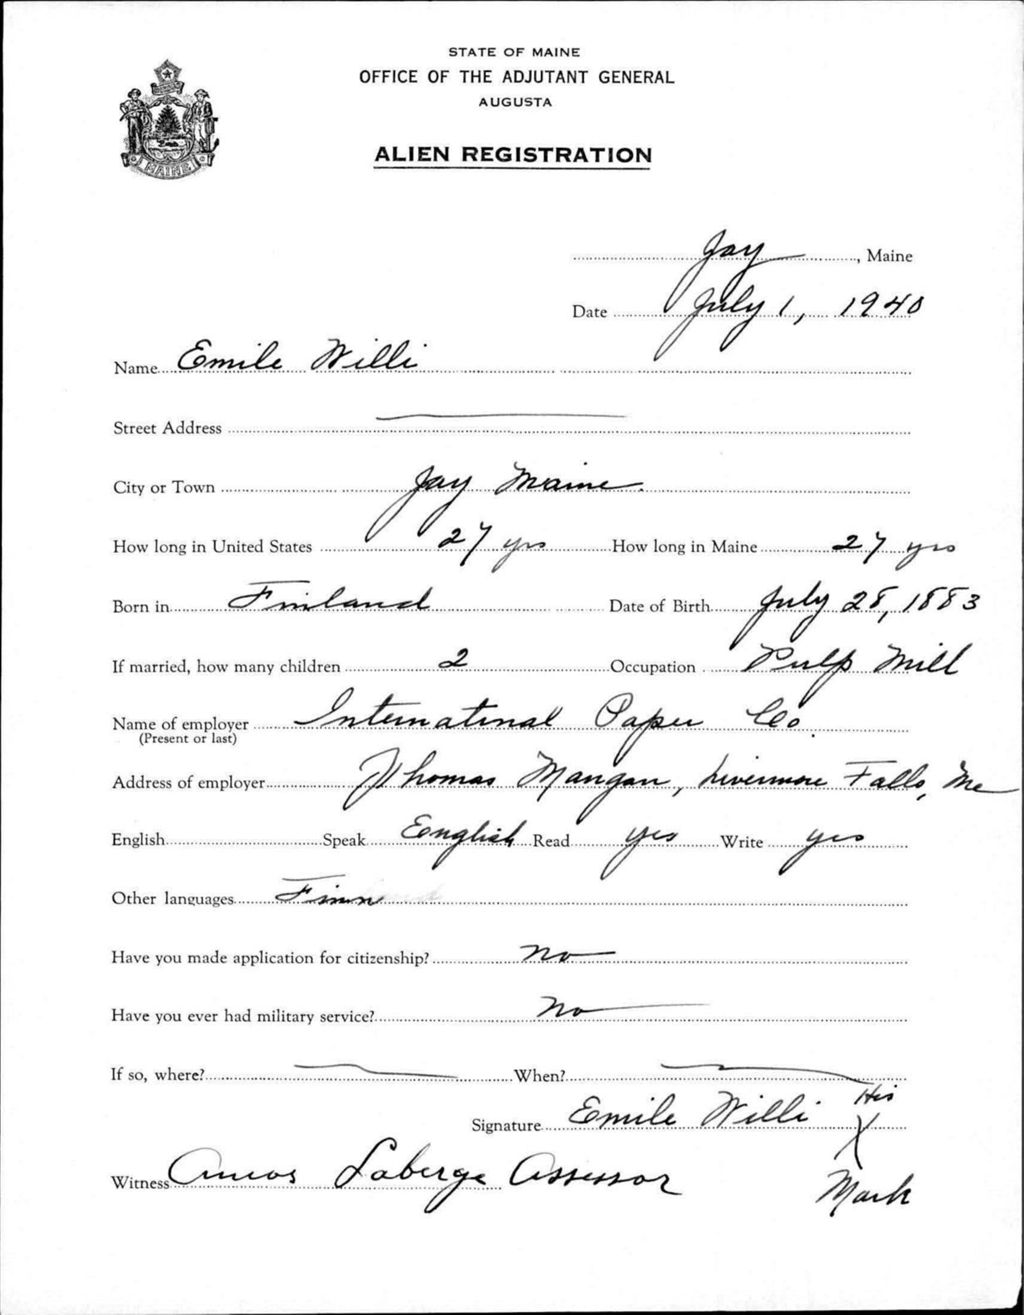 STATE OF MAINE
OFFICE OF THE ADJUTANT GENERAL
AUGUSTA
ALIEN REGISTRATION
MAINE
Jay, Maine
Date July 1, 1940
Name Emile Willi
Street Address
City or Town Jay Maine.
How long in United States 27 yrs How long in Maine 27 yrs
Born in Finland Date of Birth July 28, 1883
If married, how many children 2 Occupation Pulp Mill
Name of employer International Paper Co.
(Present or last)
Address of employer Thomas Mangan, Livermore Falls, Me
English Speak English Read yes Write yes
Other languages Finn
Have you made application for citizenship? no
Have you ever had military service? no
If so, where? When?
Signature Emile Willi His
X
Witness Laberge Assessor Mark